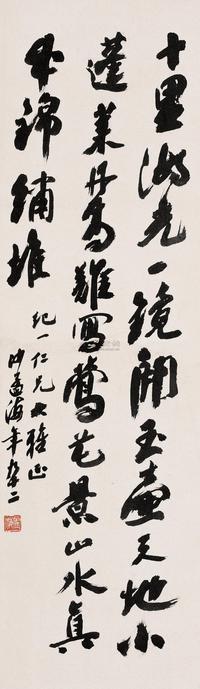 十里湖光一鏡開玉壺天地小
蓬萊丹青難寫鶯花景山水真
成錦繡堆
紀一仁兄大雅正
沙孟海年九十二